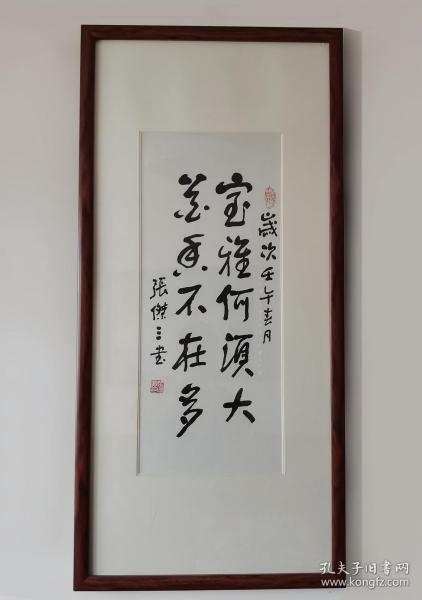 歲次壬午春月
室雅何須大
花香不在多
張傑三书
孔夫子旧书网
www.kongfz.com